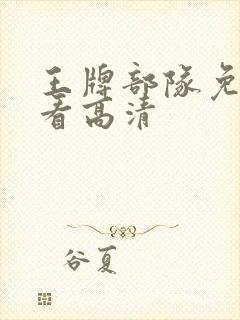 王牌部队免
看高清
谷夏